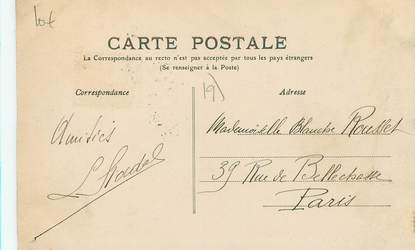 lot
CARTE POSTALE
La Correspondance au recto n'est pas acceptée par tous les pays étrangers
(Se renseigner à la Poste)
Correspondance
19)
Adresse
Amitiés
Mademoiselle Blanche Rousset
39 Rue de Bellechasse
Paris